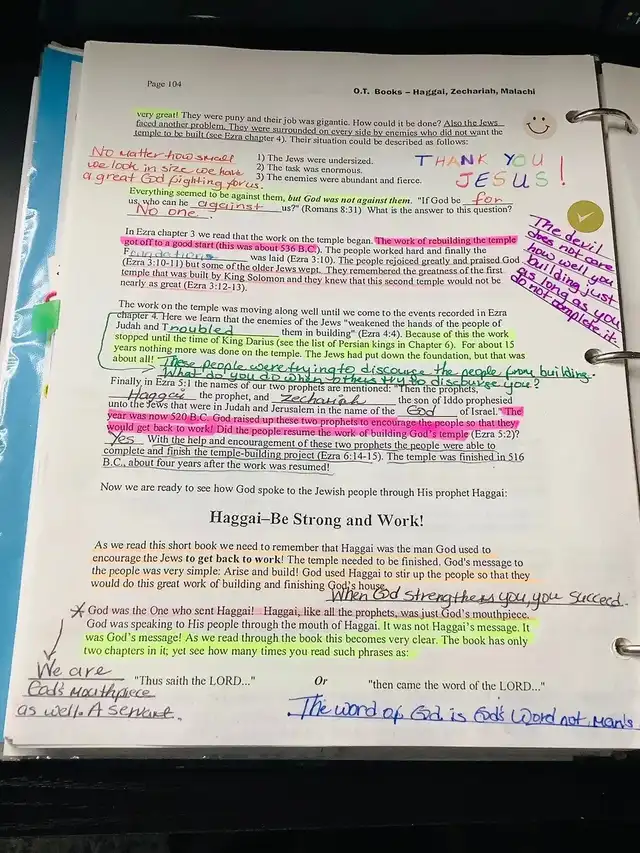 Page 104
O.T. Books – Haggai, Zechariah, Malachi
very great! They were puny and their job was gigantic. How could it be done? Also the Jews
faced another problem. They were surrounded on every side by enemies who did not want the
temple to be built (see Ezra chapter 4). Their situation could be described as follows:
No matter how small
we look in size we have
a great God fighting for us.
1) The Jews were undersized.
2) The task was enormous.
3) The enemies were abundant and fierce.
THANK YOU
JESUS!
Everything seemed to be against them, but God was not against them. "If God be for
us, who can be against us?" (Romans 8:31) What is the answer to this question?
No one.
The devil
does not care
how well you
building just
as long as you
do not complete it.
In Ezra chapter 3 we read that the work on the temple began. The work of rebuilding the temple
got off to a good start (this was about 536 B.C.). The people worked hard and finally the
Foundations was laid (Ezra 3:10). The people rejoiced greatly and praised God
(Ezra 3:10-11) but some of the older Jews wept. They remembered the greatness of the first
temple that was built by King Solomon and they knew that this second temple would not be
nearly as great (Ezra 3:12-13).
The work on the temple was moving along well until we come to the events recorded in Ezra
chapter 4. Here we learn that the enemies of the Jews "weakened the hands of the people of
Judah and Troubled them in building" (Ezra 4:4). Because of this the work
stopped until the time of King Darius (see the list of Persian kings in Chapter 6). For about 15
years nothing more was done on the temple. The Jews had put down the foundation, but that was
about all! These people were trying to discourage the people from building.
What do you do when others try to discourage you?
Finally in Ezra 5:1 the names of our two prophets are mentioned: "Then the prophets,
Haggai the prophet, and Zechariah the son of Iddo prophesied
unto the Jews that were in Judah and Jerusalem in the name of the God of Israel." The
year was now 520 B.C. God raised up these two prophets to encourage the people so that they
would get back to work! Did the people resume the work of building God's temple (Ezra 5:2)?
Yes With the help and encouragement of these two prophets the people were able to
complete and finish the temple-building project (Ezra 6:14-15). The temple was finished in 516
B.C., about four years after the work was resumed!
Now we are ready to see how God spoke to the Jewish people through His prophet Haggai:
Haggai–Be Strong and Work!
As we read this short book we need to remember that Haggai was the man God used to
encourage the Jews to get back to work! The temple needed to be finished. God's message to
the people was very simple: Arise and build! God used Haggai to stir up the people so that they
would do this great work of building and finishing God's house.
When God strengthens you, you succeed.
God was the One who sent Haggai! Haggai, like all the prophets, was just God's mouthpiece.
God was speaking to His people through the mouth of Haggai. It was not Haggai's message. It
was God's message! As we read through the book this becomes very clear. The book has only
two chapters in it; yet see how many times you read such phrases as:
We are
God's mouthpiece
as well. A servant.
"Thus saith the LORD..." Or "then came the word of the LORD..."
The word of God is God's Word not man's